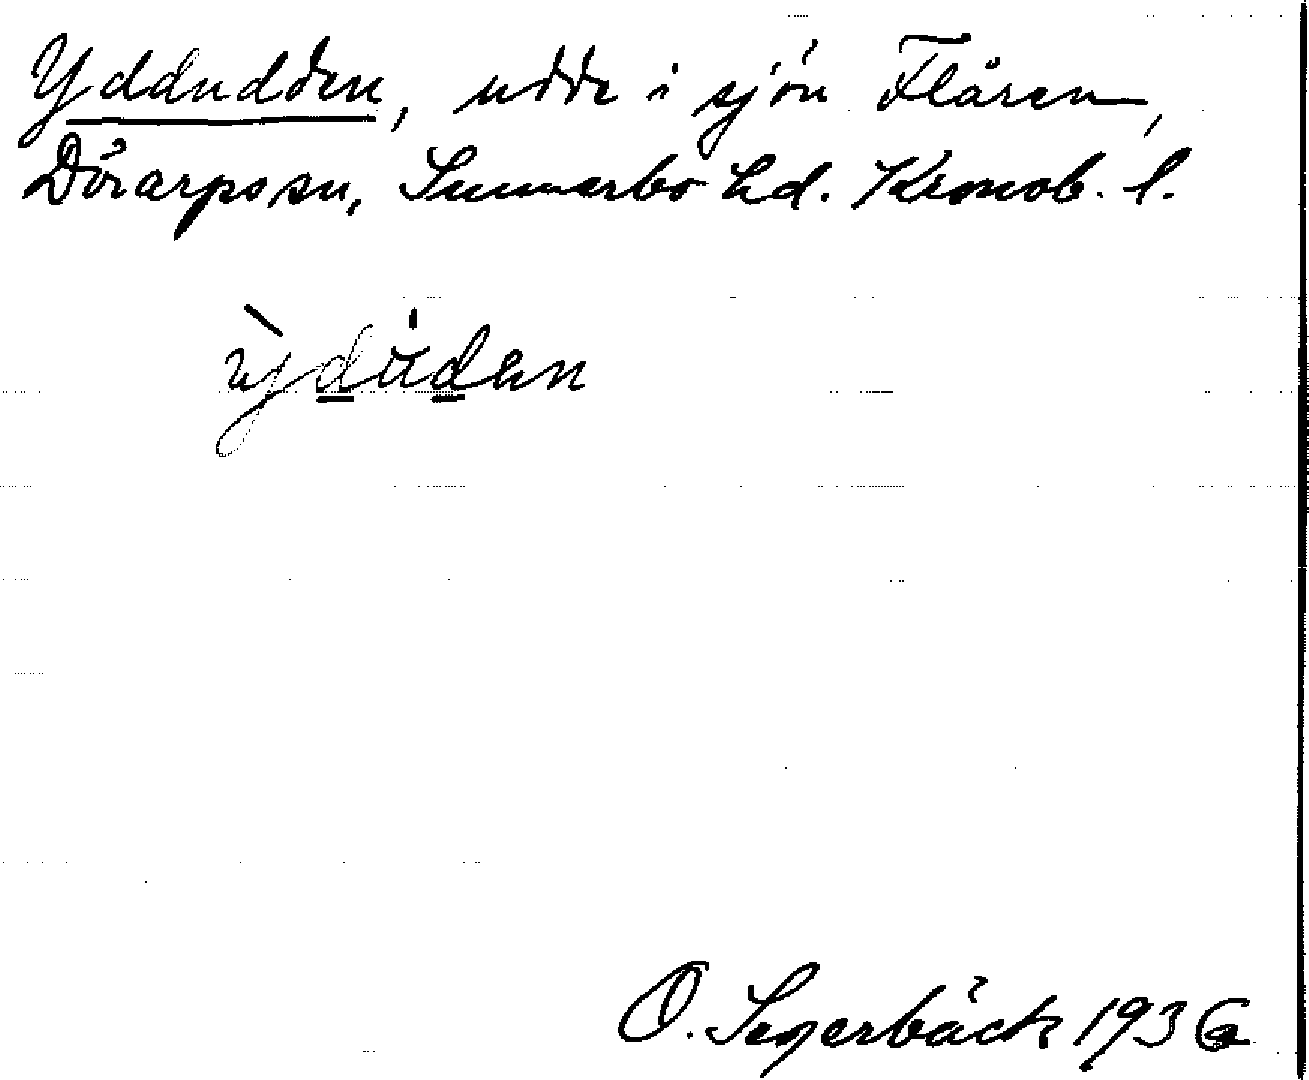 Yddudden, udde i sjön Flåren,
Dörarps sn, Sunnerbo hd. Kronob. l.
O. Segerbäck 1936